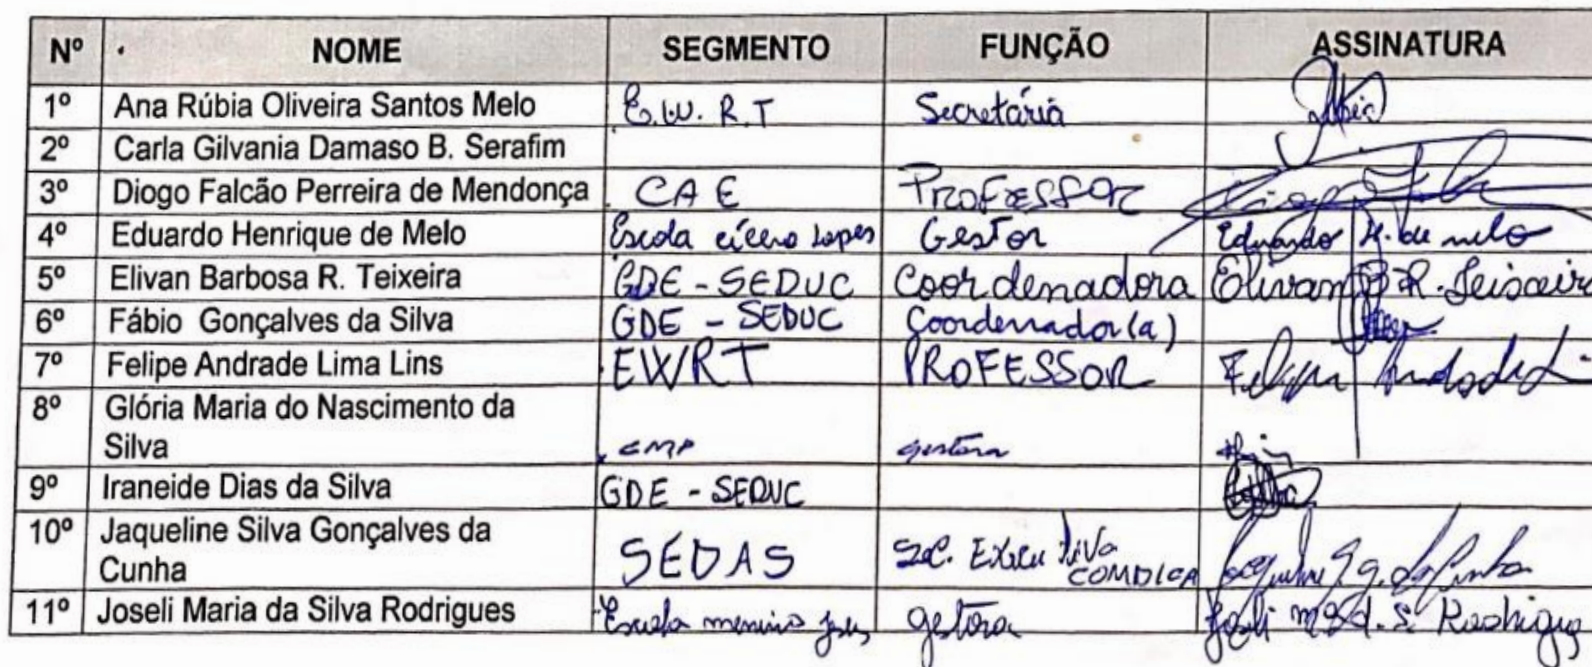 Nº NOME SEGMENTO FUNÇÃO ASSINATURA
1º Ana Rúbia Oliveira Santos Melo E.W. R.T Secretária
2º Carla Gilvania Damaso B. Serafim
3º Diogo Falcão Perreira de Mendonça CAE PROFESSOR
4º Eduardo Henrique de Melo Escola cícero Lopes Gestor Eduardo H. de melo
5º Elivan Barbosa R. Teixeira GDE - SEDUC Coordenadora Elivan B R. Teixeira
6º Fábio Gonçalves da Silva GDE - SEDUC Coordenador(a)
7º Felipe Andrade Lima Lins EWRT PROFESSOR Felipe Andrade L
8º Glória Maria do Nascimento da
Silva CMP gestora
9º Iraneide Dias da Silva GDE - SEDUC
10º Jaqueline Silva Gonçalves da
Cunha SEDAS Sec. Executiva COMDICA
11º Joseli Maria da Silva Rodrigues Escola menino Jesus gestora